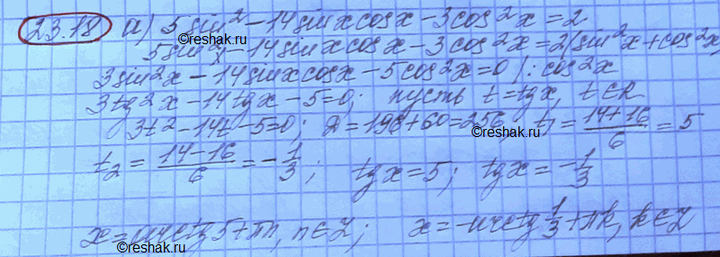 23.18 а) 5 sin² - 14 sinx cosx - 3cos²x = 2
5sin²x - 14sinx cosx - 3cos²x = 2(sin²x + cos²x
3sin²x - 14sinx cosx - 5cos²x = 0 /: cos²x
3tg²x - 14tgx - 5 = 0; пусть t = tgx, t ∈ R
3t² - 14t - 5 = 0; D = 196 + 60 = 256 t₁ = (14+16)/6 = 5
t₂ = (14-16)/6 = -1/3; tgx = 5; tgx = -1/3
x = arctg5 + πn, n ∈ Z; x = -arctg 1/3 + πk, k ∈ Z
©reshak.ru
©reshak.ru
©reshak.ru
©reshak.ru